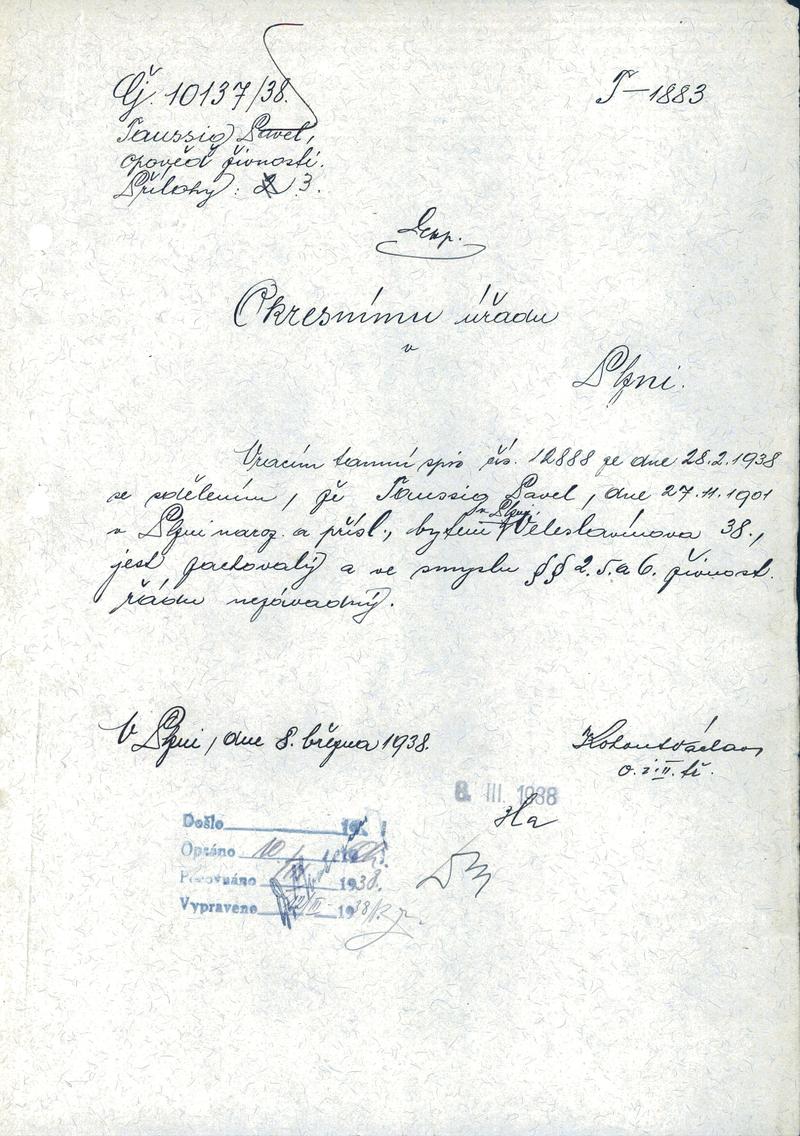 Čj. 10137/38.
T-1883
Taussig Pavel,
opověď živnosti.
Přílohy: 3.
Okresnímu úřadu
v
Plzni.
Vracím tamní spis čís. 12888 ze dne 28.2.1938
se sdělením, že Taussig Pavel, dne 27.11.1901
v Plzni
v Plzni naroz. a přísl., bytem Veleslavínova 38.,
jest zachovalý a ve smyslu §§ 2.5.a 6. živnost.
řádu nezávadný.
V Plzni, dne 8. března 1938.
8. III. 1938
Došlo 19
Opsáno 10
Porovnáno 1938.
Vypraveno 22/III 1938